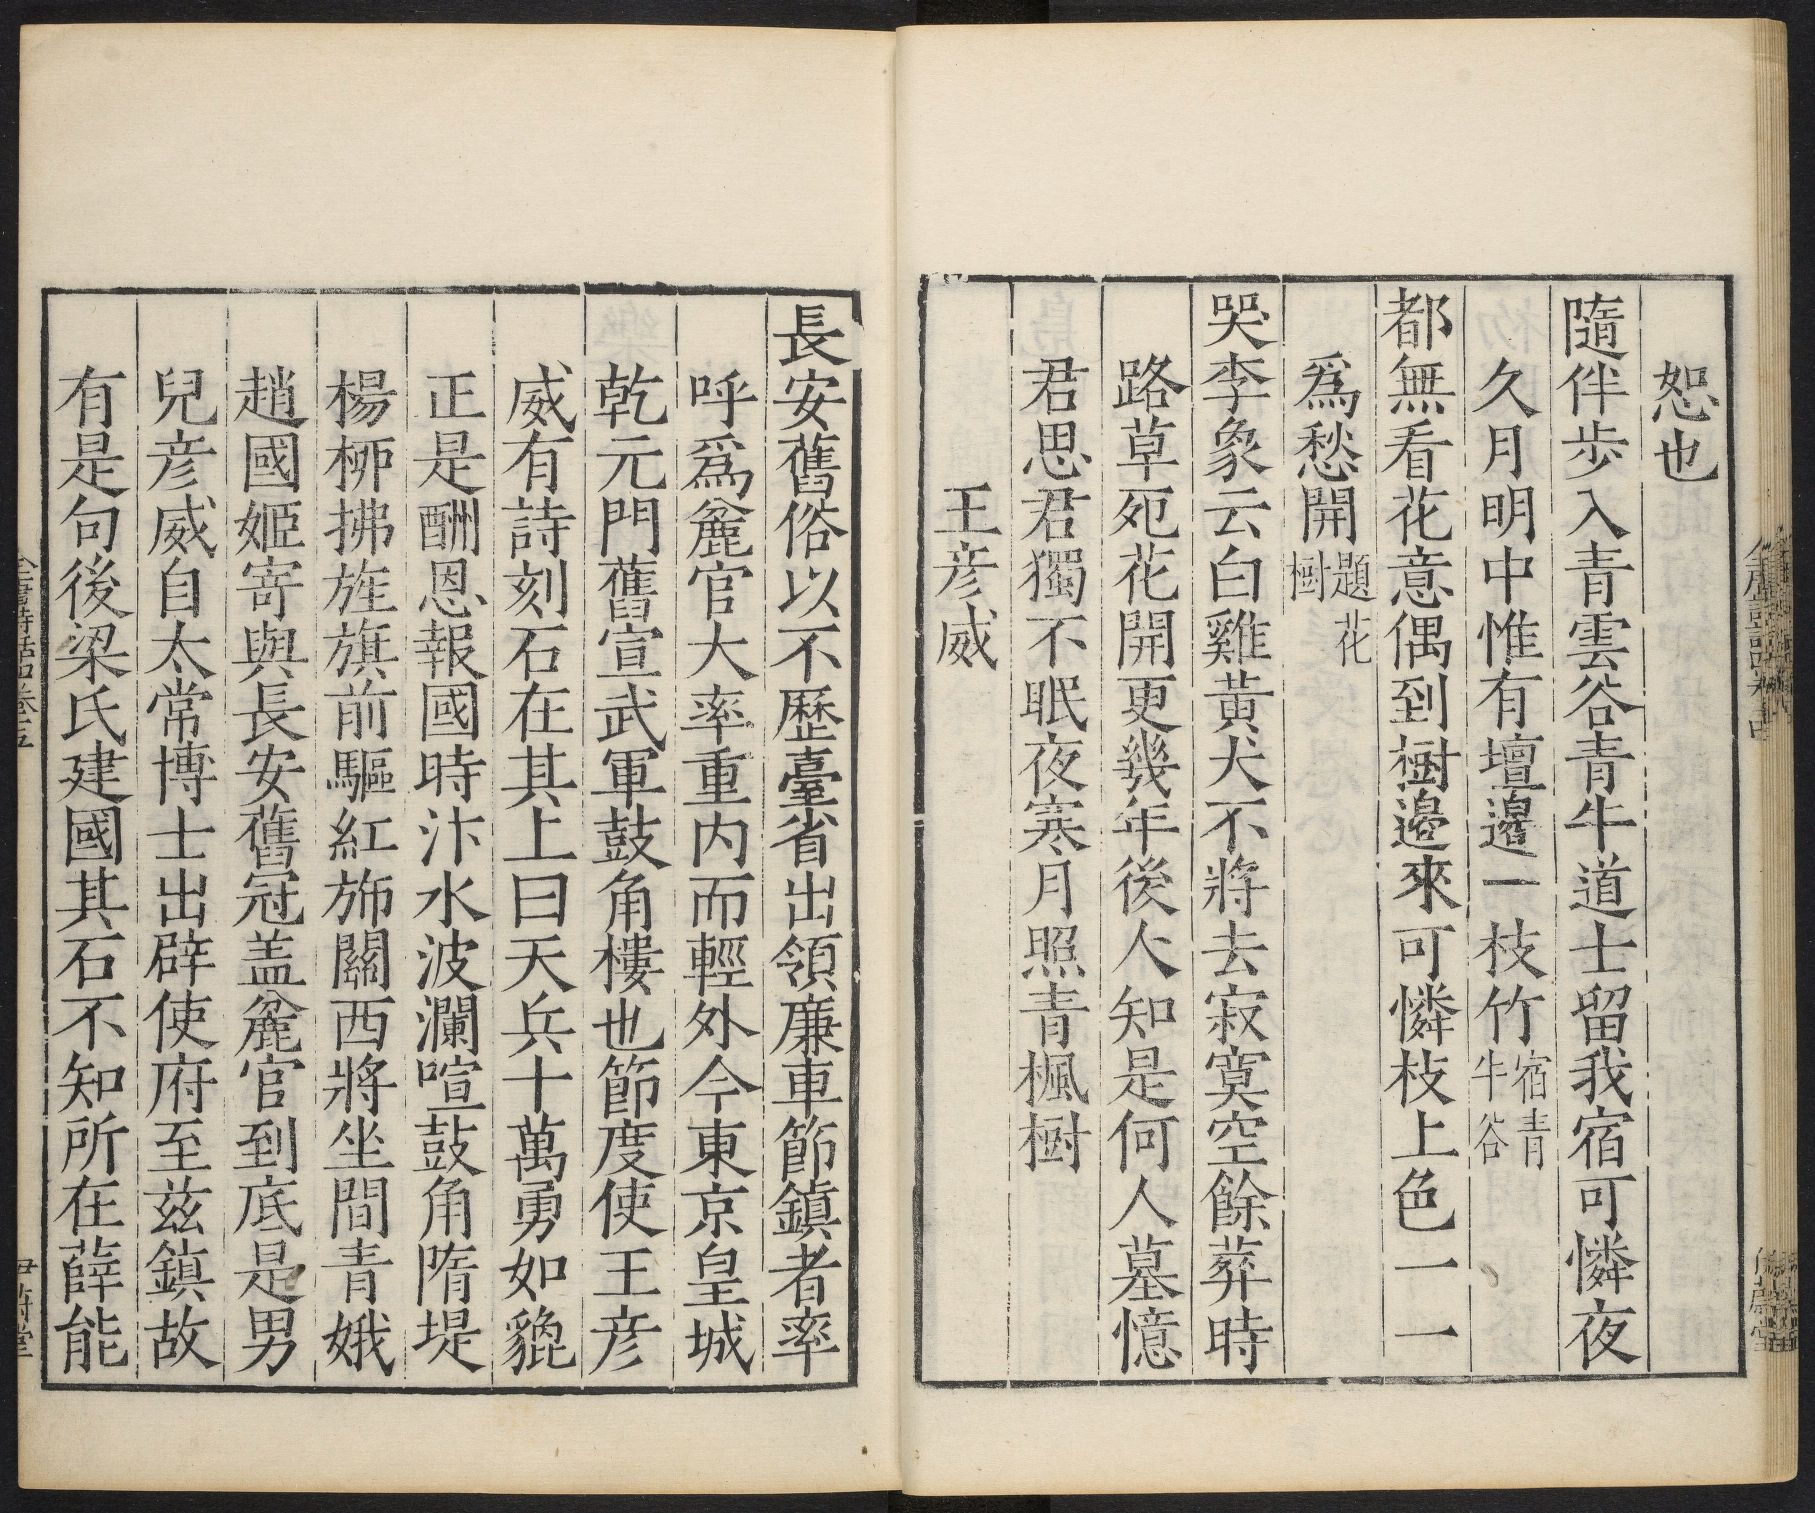 恕也
隨伴步入青雲谷青牛道士留我宿可憐夜
久月明中惟有壇邊一枝竹宿青牛谷
都無看花意偶到樹邊來可憐枝上色一一
爲愁開題花樹
哭李象云白雞黃犬不將去寂寞空餘葬時
路草死花開更幾年後人知是何人墓憶
君思君獨不眠夜寒月照青楓樹
王彦威
長安舊俗以不歷臺省出領廉車節鎮者率
呼爲麄官大率重内而輕外今東京皇城
乾元門舊宣武軍鼓角樓也節度使王彦
威有詩刻石在其上曰天兵十萬勇如貔
正是酬恩報國時汴水波瀾喧鼓角隋堤
楊栁拂旌旗前驅紅斾關西將坐間青娥
趙國姬寄與長安舊冠盖麄官到底是男
兒彦威自太常博士出辟使府至兹鎮故
有是句後梁氏建國其石不知所在薛能